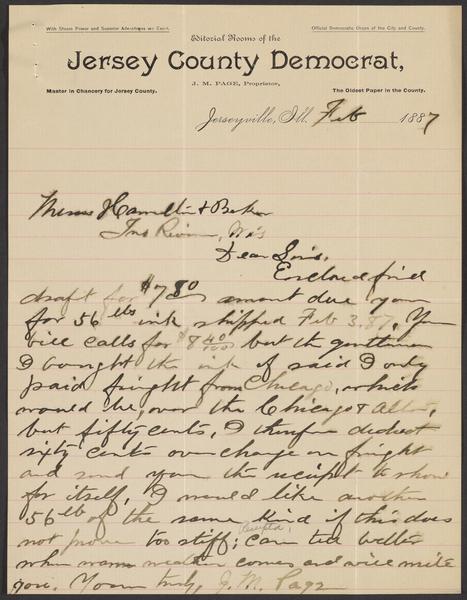 With Steam Power and Superior Advantages we Excel.
Official Democratic Organ of the City and County.
Editorial Rooms of the
Jersey County Democrat,
J. M. PAGE, Proprietor,
Master in Chancery for Jersey County.
The Oldest Paper in the County.
Jerseyville, Ill. Feb 1887
Messrs Hamilton & Baker
Two Rivers, Wis
Dear Sirs,
Enclosed find
draft for $7 80 amount due you
for 56 lbs ink shipped Feb 3. 87. Your
bill calls for $8 40/100 but the gentleman
I bought the ink of said I only
paid freight from Chicago, which
would be, over the Chicago & Alton,
but fifty cents, I therefore deduct
sixty cents over charge on freight
and send you the receipt to show
for itself, I would like another
56 lb of the same kind if this does
not prove too stiff; can tell better
when warm weather comes and will write
you. Yours truly, J. M. Page